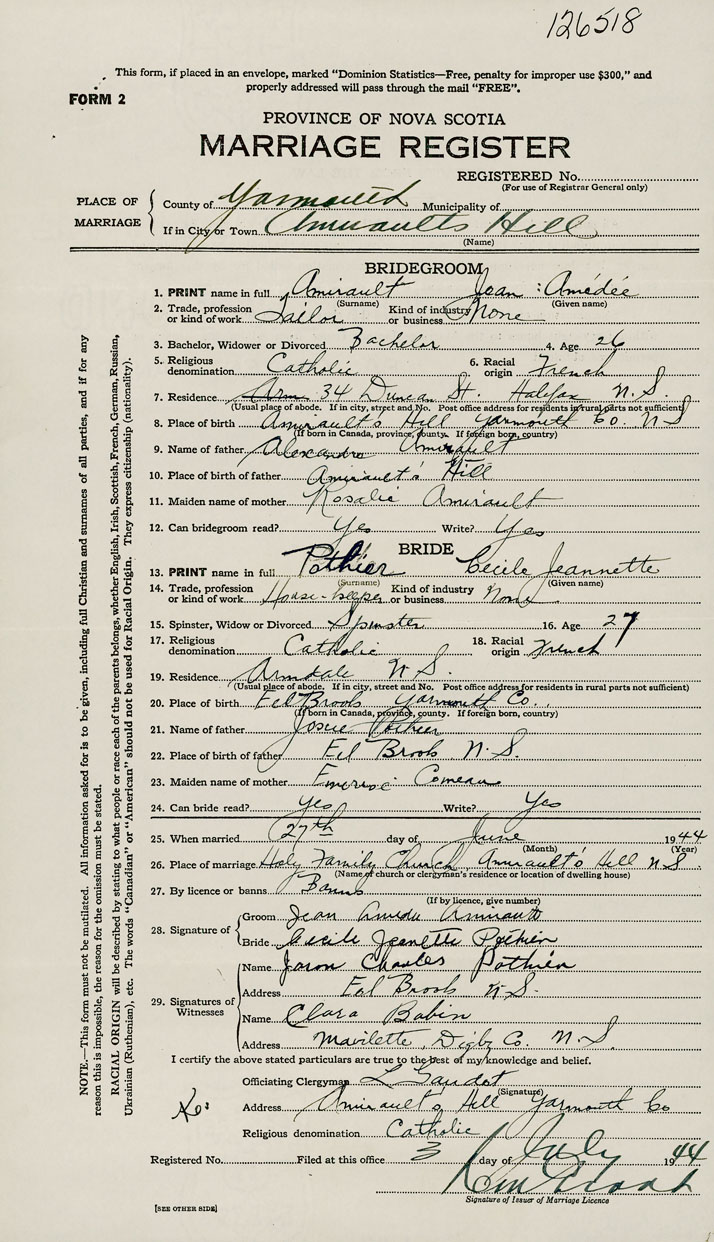 126518
This form, if placed in an envelope, marked "Dominion Statistics—Free, penalty for improper use $300," and
properly addressed will pass through the mail "FREE".
FORM 2
PROVINCE OF NOVA SCOTIA
MARRIAGE REGISTER
REGISTERED No.
(For use of Registrar General only)
PLACE OF MARRIAGE
County of Yarmouth Municipality of
If in City or Town Amiraults Hill
(Name)
BRIDEGROOM
1. PRINT name in full Amirault Jean Amédée
(Surname) (Given name)
2. Trade, profession or kind of work Sailor Kind of industry or business None
3. Bachelor, Widower or Divorced Bachelor 4. Age 26
5. Religious denomination Catholic 6. Racial origin French
7. Residence 34 Duncan St. Halifax N.S.
(Usual place of abode. If in city, street and No. Post office address for residents in rural parts not sufficient)
8. Place of birth Amirault's Hill Yarmouth Co. N S
(If born in Canada, province, county. If foreign born, country)
9. Name of father Alexandre Amirault
10. Place of birth of father Amirault's Hill
11. Maiden name of mother Rosalie Amirault
12. Can bridegroom read? Yes Write? Yes
BRIDE
13. PRINT name in full Pothier Cecile Jeannette
(Surname) (Given name)
14. Trade, profession or kind of work House-keeper Kind of industry or business None
15. Spinster, Widow or Divorced Spinster 16. Age 27
17. Religious denomination Catholic 18. Racial origin French
19. Residence Armdale N.S.
(Usual place of abode. If in city, street and No. Post office address for residents in rural parts not sufficient)
20. Place of birth Eel Brook Yarmouth Co.
(If born in Canada, province, county. If foreign born, country)
21. Name of father Josue Pothier
22. Place of birth of father Eel Brook N.S.
23. Maiden name of mother Comeau
24. Can bride read? Yes Write? Yes
25. When married 27th day of June 1944
(Month) (Year)
26. Place of marriage Holy Family Church, Amirault's Hill N S
(Name of church or clergyman's residence or location of dwelling house)
27. By licence or banns Banns
(If by licence, give number)
28. Signature of
Groom Jean Amedee Amirault
Bride Cecile Jeanette Pothier
29. Signatures of Witnesses
Name Charles Pothier
Address Eel Brook N.S.
Name Clara Babin
Address Mavilette, Digby Co. N.S.
I certify the above stated particulars are true to the best of my knowledge and belief.
Officiating Clergyman L Gaudet
(Signature)
Address Amirault's Hill Yarmouth Co
Religious denomination Catholic
Registered No. Filed at this office 3 day of July 1944
Signature of Issuer of Marriage Licence
[SEE OTHER SIDE]
NOTE.—This form must not be mutilated. All information asked for is to be given, including full Christian and surnames of all parties, and if for any
reason this is impossible, the reason for the omission must be stated.
RACIAL ORIGIN will be described by stating to what people or race each of the parents belongs, whether English, Irish, Scottish, French, German, Russian,
Ukrainian (Ruthenian), etc. The words "Canadian" or "American" should not be used for Racial Origin. They express citizenship (nationality).